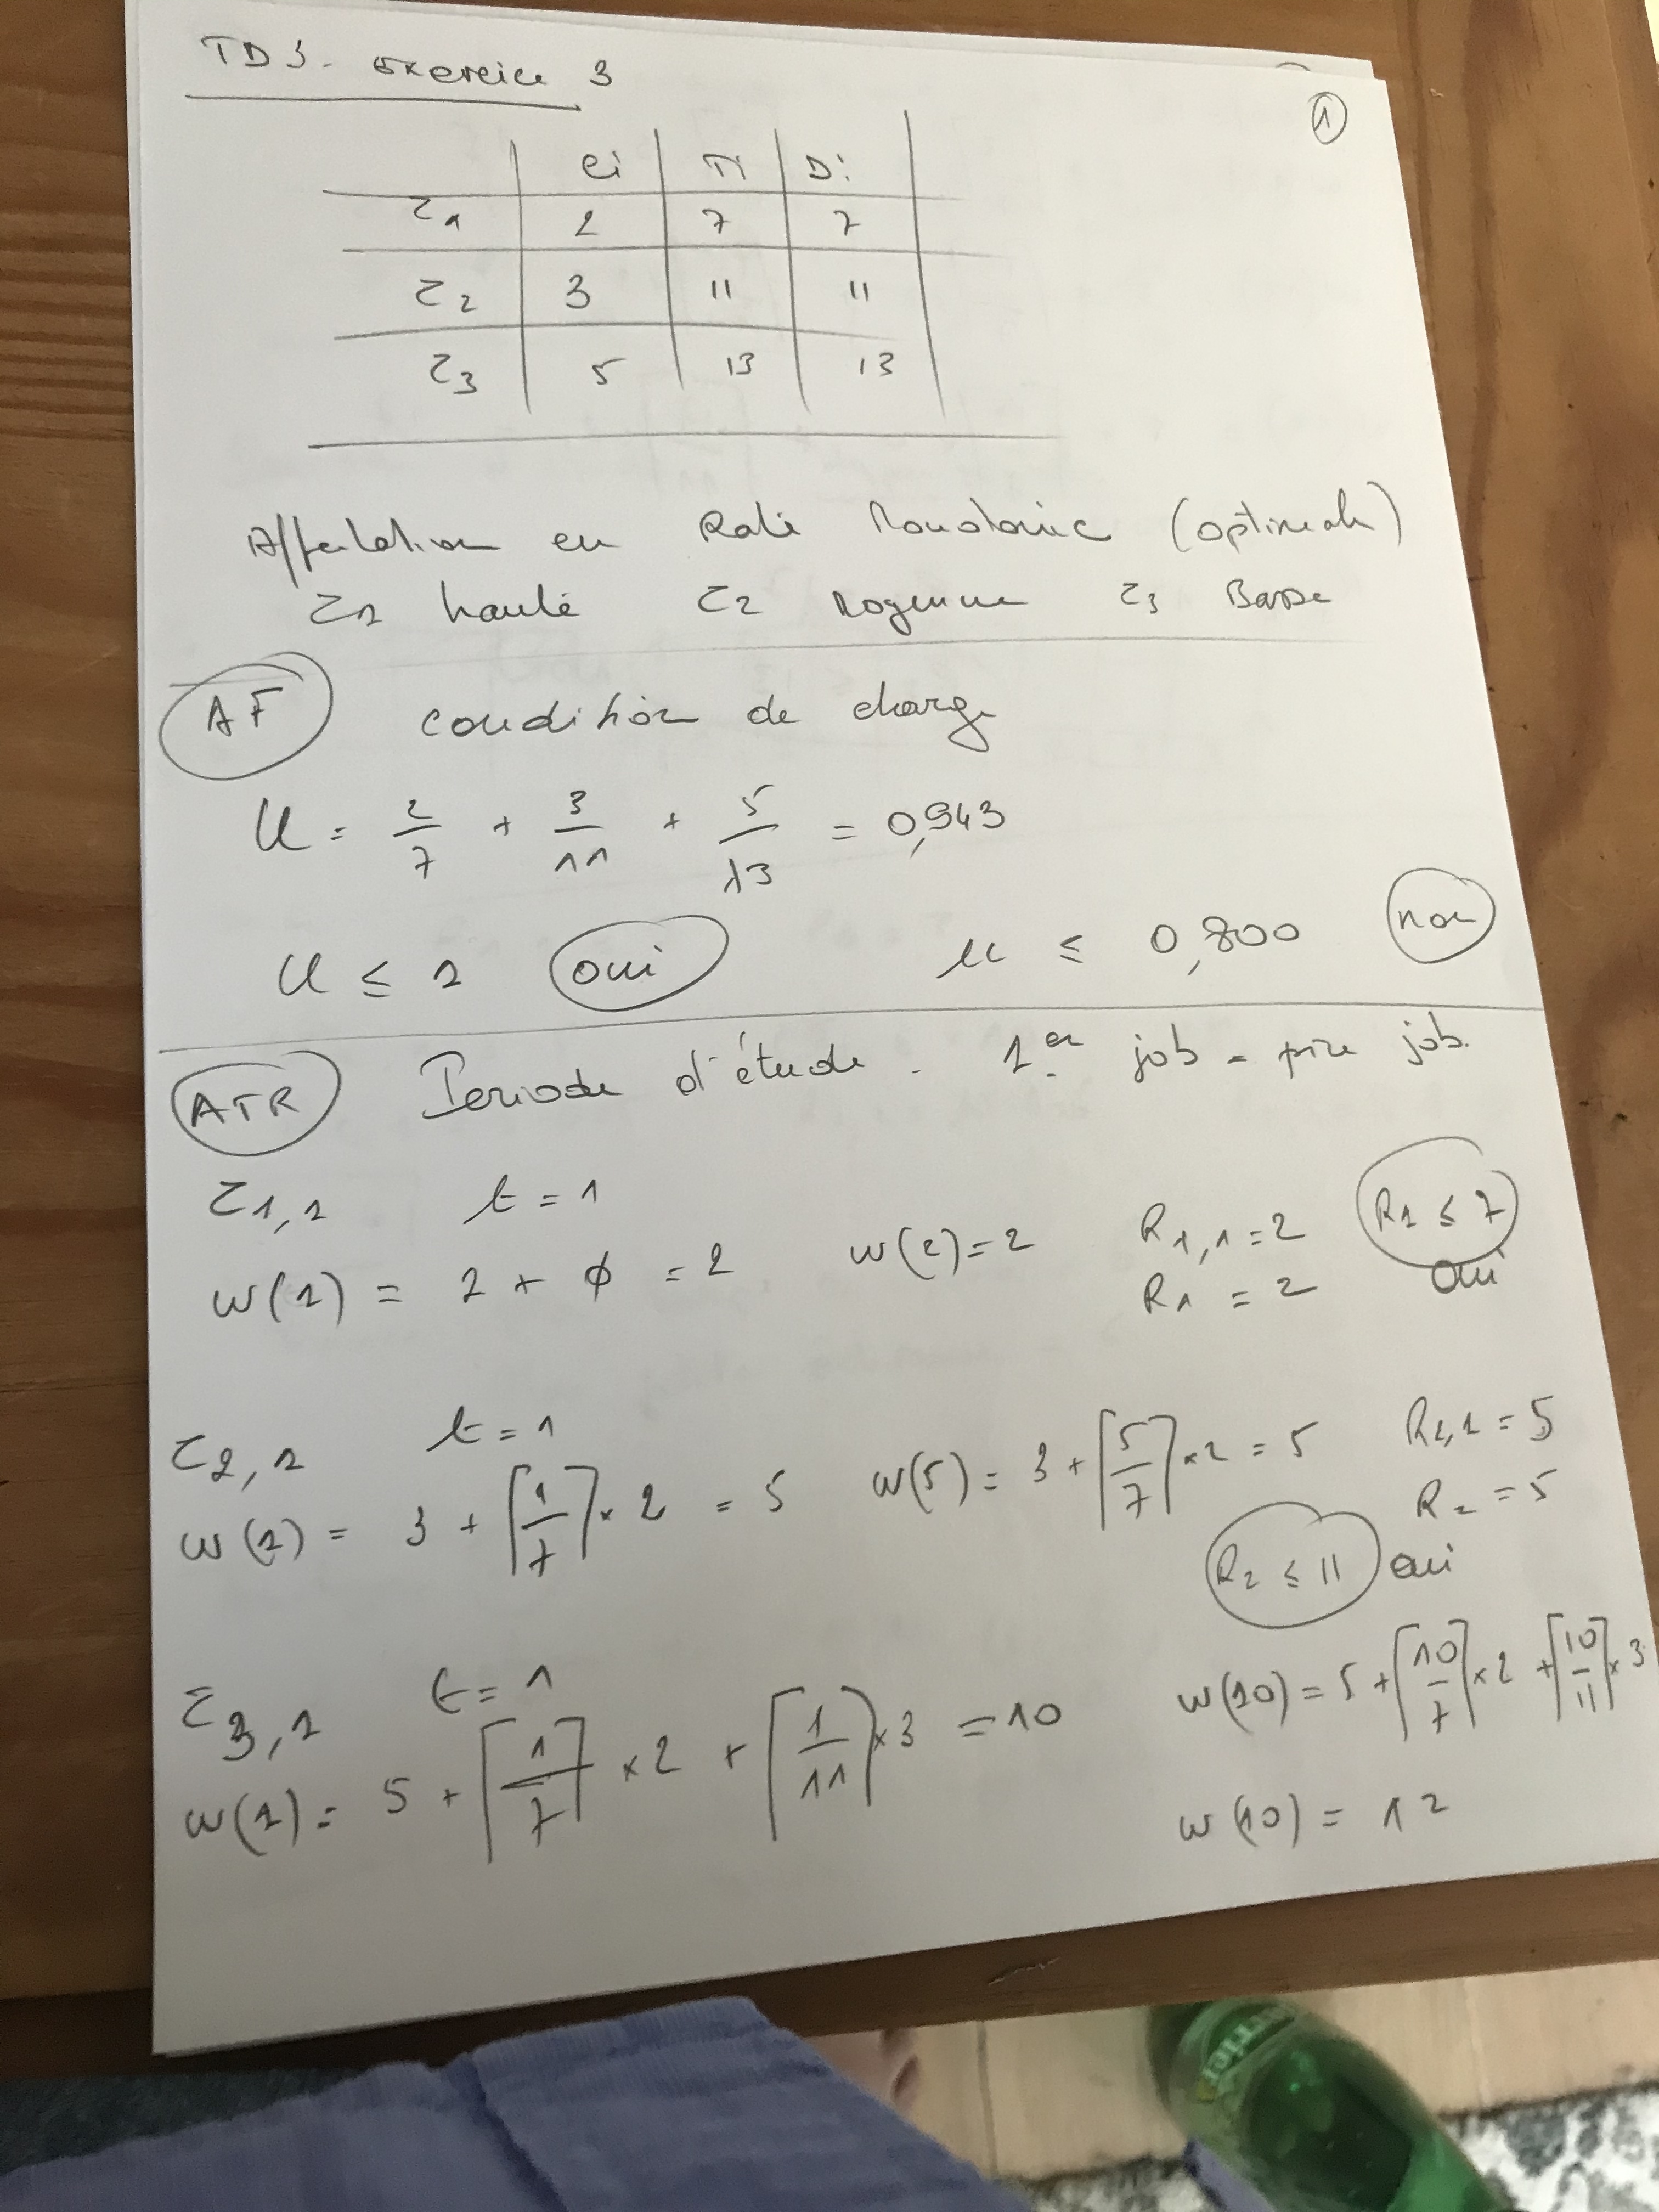 TD3. Exercice 3
1
Ci Ti Di
τ1 2 7 7
τ2 3 11 11
τ3 5 13 13
Affectation en Rate Monotonic (optimale)
τ1 haute τ2 Moyenne τ3 Basse
AF condition de charge
U = 2/7 + 3/11 + 5/13 = 0,943
U ≤ 1 oui U ≤ 0,800 non
ATR Periode d'étude. 1er job = pire job.
τ1,1 t = 1
w(1) = 2 + ϕ = 2 w(2) = 2 R1,1 = 2 R1 ≤ 7
R1 = 2 oui
τ2,1 t = 1
w(1) = 3 + ⌈1/7⌉ × 2 = 5 w(5) = 3 + ⌈5/7⌉ × 2 = 5 R2,1 = 5
R2 = 5
R2 ≤ 11 oui
τ3,1 t = 1
w(1) = 5 + ⌈1/7⌉ × 2 + ⌈1/11⌉ × 3 = 10 w(10) = 5 + ⌈10/7⌉ × 2 + ⌈10/11⌉ × 3
w(10) = 12